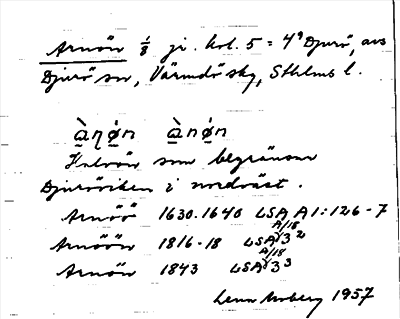 Arnön 1/8 j. kol. 5 = 4⁹ Djurö, avs
Djurö sn, Värmdö sky, Sthlms l.
àŋǿn ànǿn
Halvön som begränsar
Djuröviken i nordväst.
Arnöö 1630-1640 LSA A1:126-7
Arnöön 1816-18 LSA A/18 3²
Arnön 1843 LSA A/18 3³
Lena Moberg 1957